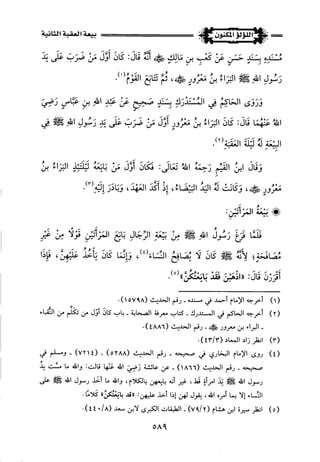 اللؤلؤ المكنون
بيعة العقبة الثانية
مُسْنَدِهِ بِسَنَدٍ حَسَنٍ عَنْ كَعْبِ بنِ مَالِكٍ ﷺ أَنَّهُ قَالَ: كَانَ أَوَّلَ مَنْ ضَرَبَ عَلَى يَدِ
رَسُولِ اللهِ ﷺ البَرَاءُ بنُ مَعْرُورٍ ﷺ، ثُمَّ تَتَابَعَ القَوْمُ(١).
وَرَوَى الحَاكِمُ فِي المُسْتَدْرَكِ بِسَنَدٍ صَحِيحٍ عَنْ عَبْدِ اللهِ بنِ عَبَّاسٍ رَضِيَ
اللهُ عَنْهُمَا قَالَ: كَانَ البَرَاءُ بنُ مَعْرُورٍ أَوَّلَ مَنْ ضَرَبَ عَلَى يَدِ رَسُولِ اللهِ ﷺ فِي
البَيْعَةِ لَهُ لَيْلَةَ العَقَبَةِ(٢).
وَقَالَ ابنُ القَيِّمِ رَحِمَهُ اللهُ تَعَالَى: فَكَانَ أَوَّلَ مَنْ بَايَعَهُ لَيْلَتَئِذٍ البَرَاءُ بنُ
مَعْرُورٍ ﷺ، وَكَانَتْ لَهُ اليَدُ البَيْضَاءُ، إِذْ أَكَّدَ العَقْدَ، وَبَادَرَ إِلَيْهِ(٣).
بَيْعَةُ المَرْأَتَيْنِ:
فَلَمَّا فَرَغَ رَسُولُ اللهِ ﷺ مِنْ بَيْعَةِ الرِّجَالِ بَايَعَ المَرْأَتَيْنِ قَوْلًا مِنْ غَيْرِ
مُصَافَحَةٍ، لِأَنَّهُ ﷺ كَانَ لَا يُصَافِحُ النِّسَاءَ(٤)، وَإِنَّمَا كَانَ يَأْخُذُ عَلَيْهِنَّ، فَإِذَا
أَقْرَرْنَ قَالَ: «اذْهَبْنَ فَقَدْ بَايَعْتُكُنَّ»(٥).
(١) أخرجه الإمام أحمد في مسنده ـ رقم الحديث (١٥٧٩٨).
(٢) أخرجه الحاكم في المستدرك ـ كتاب معرفة الصحابة ـ باب كان أول من تكلم من النقباء
ـ البراء بن معرور ﷺ ـ رقم الحديث (٤٨٨٦).
(٣) انظر زاد المعاد (٤٣/٣).
(٤) روى الإمام البخاري في صحيحه ـ رقم الحديث (٥٢٨٨) ـ (٧٢١٤) ـ ومسلم في
صحيحه ـ رقم الحديث (١٨٦٦) ـ عن عائشة رَضِيَ اللهُ عَنْهَا قالت: والله ما مست يد
رسول الله ﷺ يد امرأة قط، غير أنه بايعهن بالكلام، والله ما أخذ رسول الله ﷺ على
النساء إلا بما أمره الله، يقول لهن إذا أخذ عليهن: «قد بايعتكن» كلامًا.
(٥) انظر سيرة ابن هشام (٧٩/٢) ـ الطبقات الكبرى لابن سعد (٤٤٠/٨).
٥٨٩